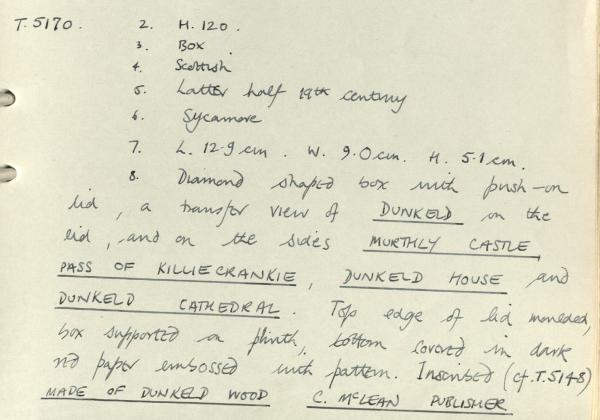 T.5170. 2. H. 120.
3. Box.
4. Scottish
5. Latter half 19th century
6. Sycamore
7. L. 12.9 cm. W. 9.0 cm. H. 5.1 cm.
8. Diamond shaped box with push-on
lid, a transfer view of DUNKELD on the
lid, and on the sides MURTHLY CASTLE,
PASS OF KILLIECRANKIE, DUNKELD HOUSE and
DUNKELD CATHEDRAL. Top edge of lid
box supported on plinth, bottom covered in dark
red paper embossed with pattern. Inscribed (cf. T.5148)
MADE OF DUNKELD WOOD C. McLEAN PUBLISHER.